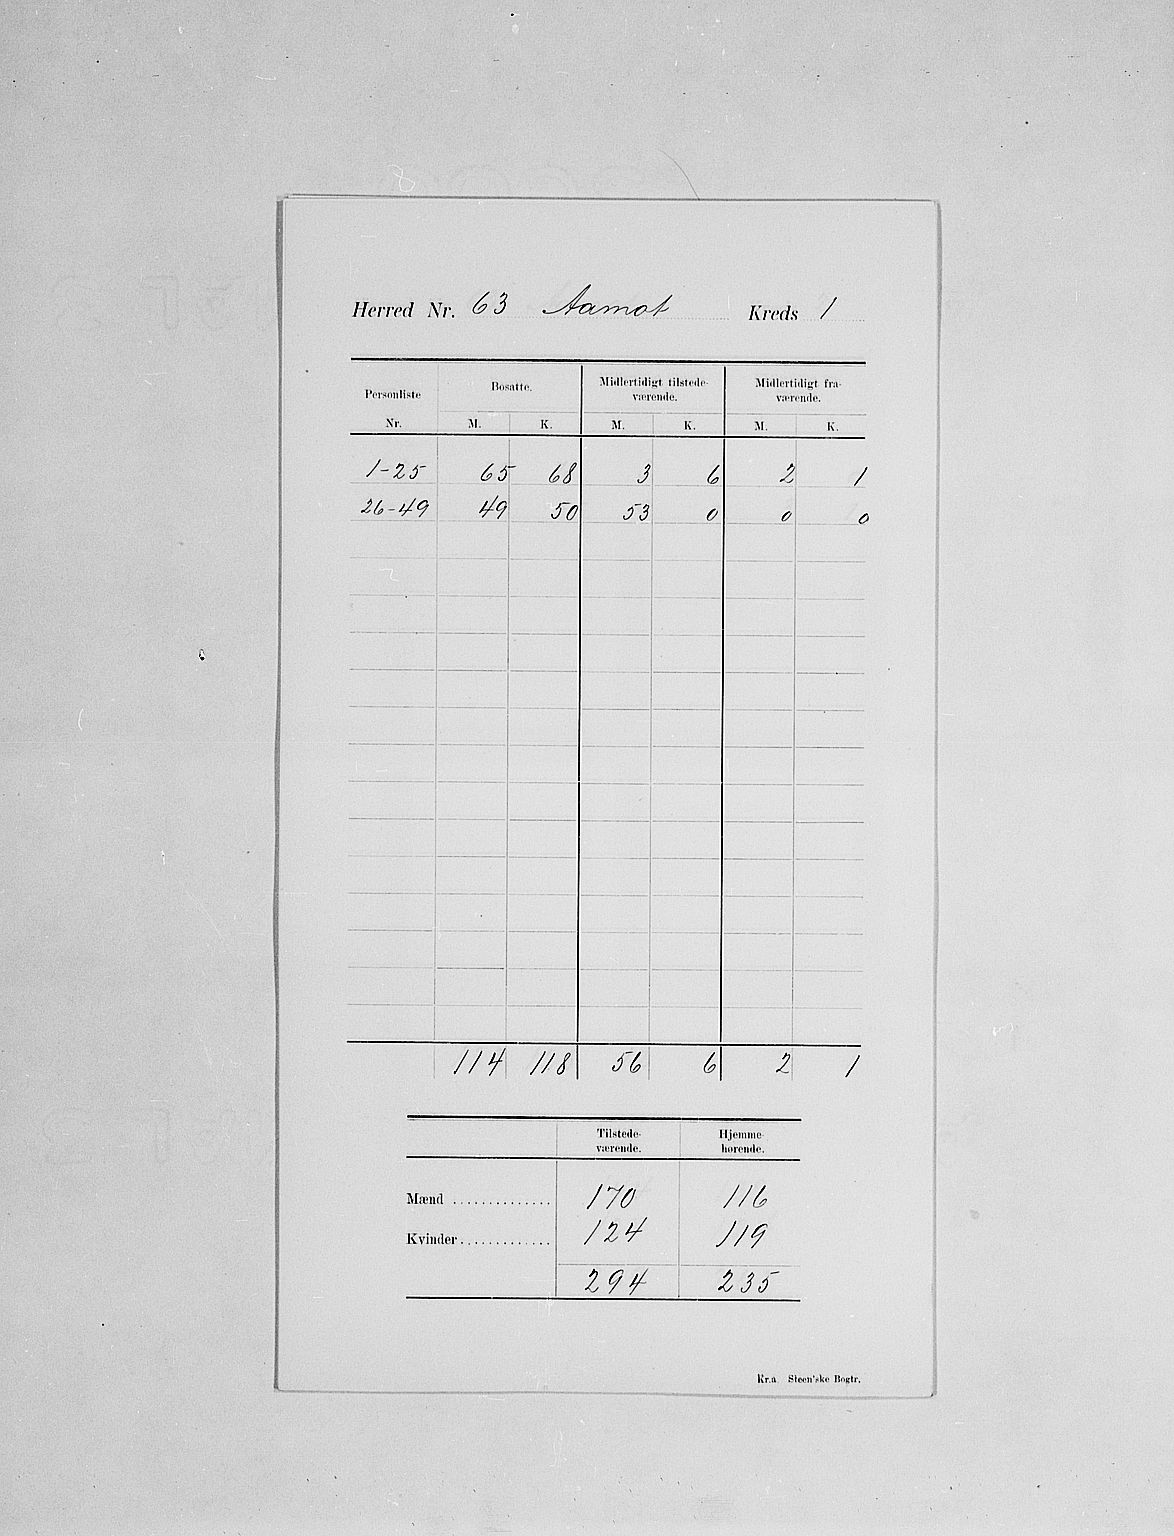 Herred Nr. 63 Aamot Kreds 1
Personliste Nr. Bosatte. Midlertidigt tilstede-værende. Midlertidigt fra-værende.
M. K. M. K. M. K.
1-25 65 68 3 6 2 1
26-49 49 50 53 0 0 0
114 118 56 6 2 1
Tilstede-værende. Hjemme-hørende.
Mænd .............. 170 116
Kvinder............. 124 119
294 235
Kr.a. Steen'ske Bogtr.